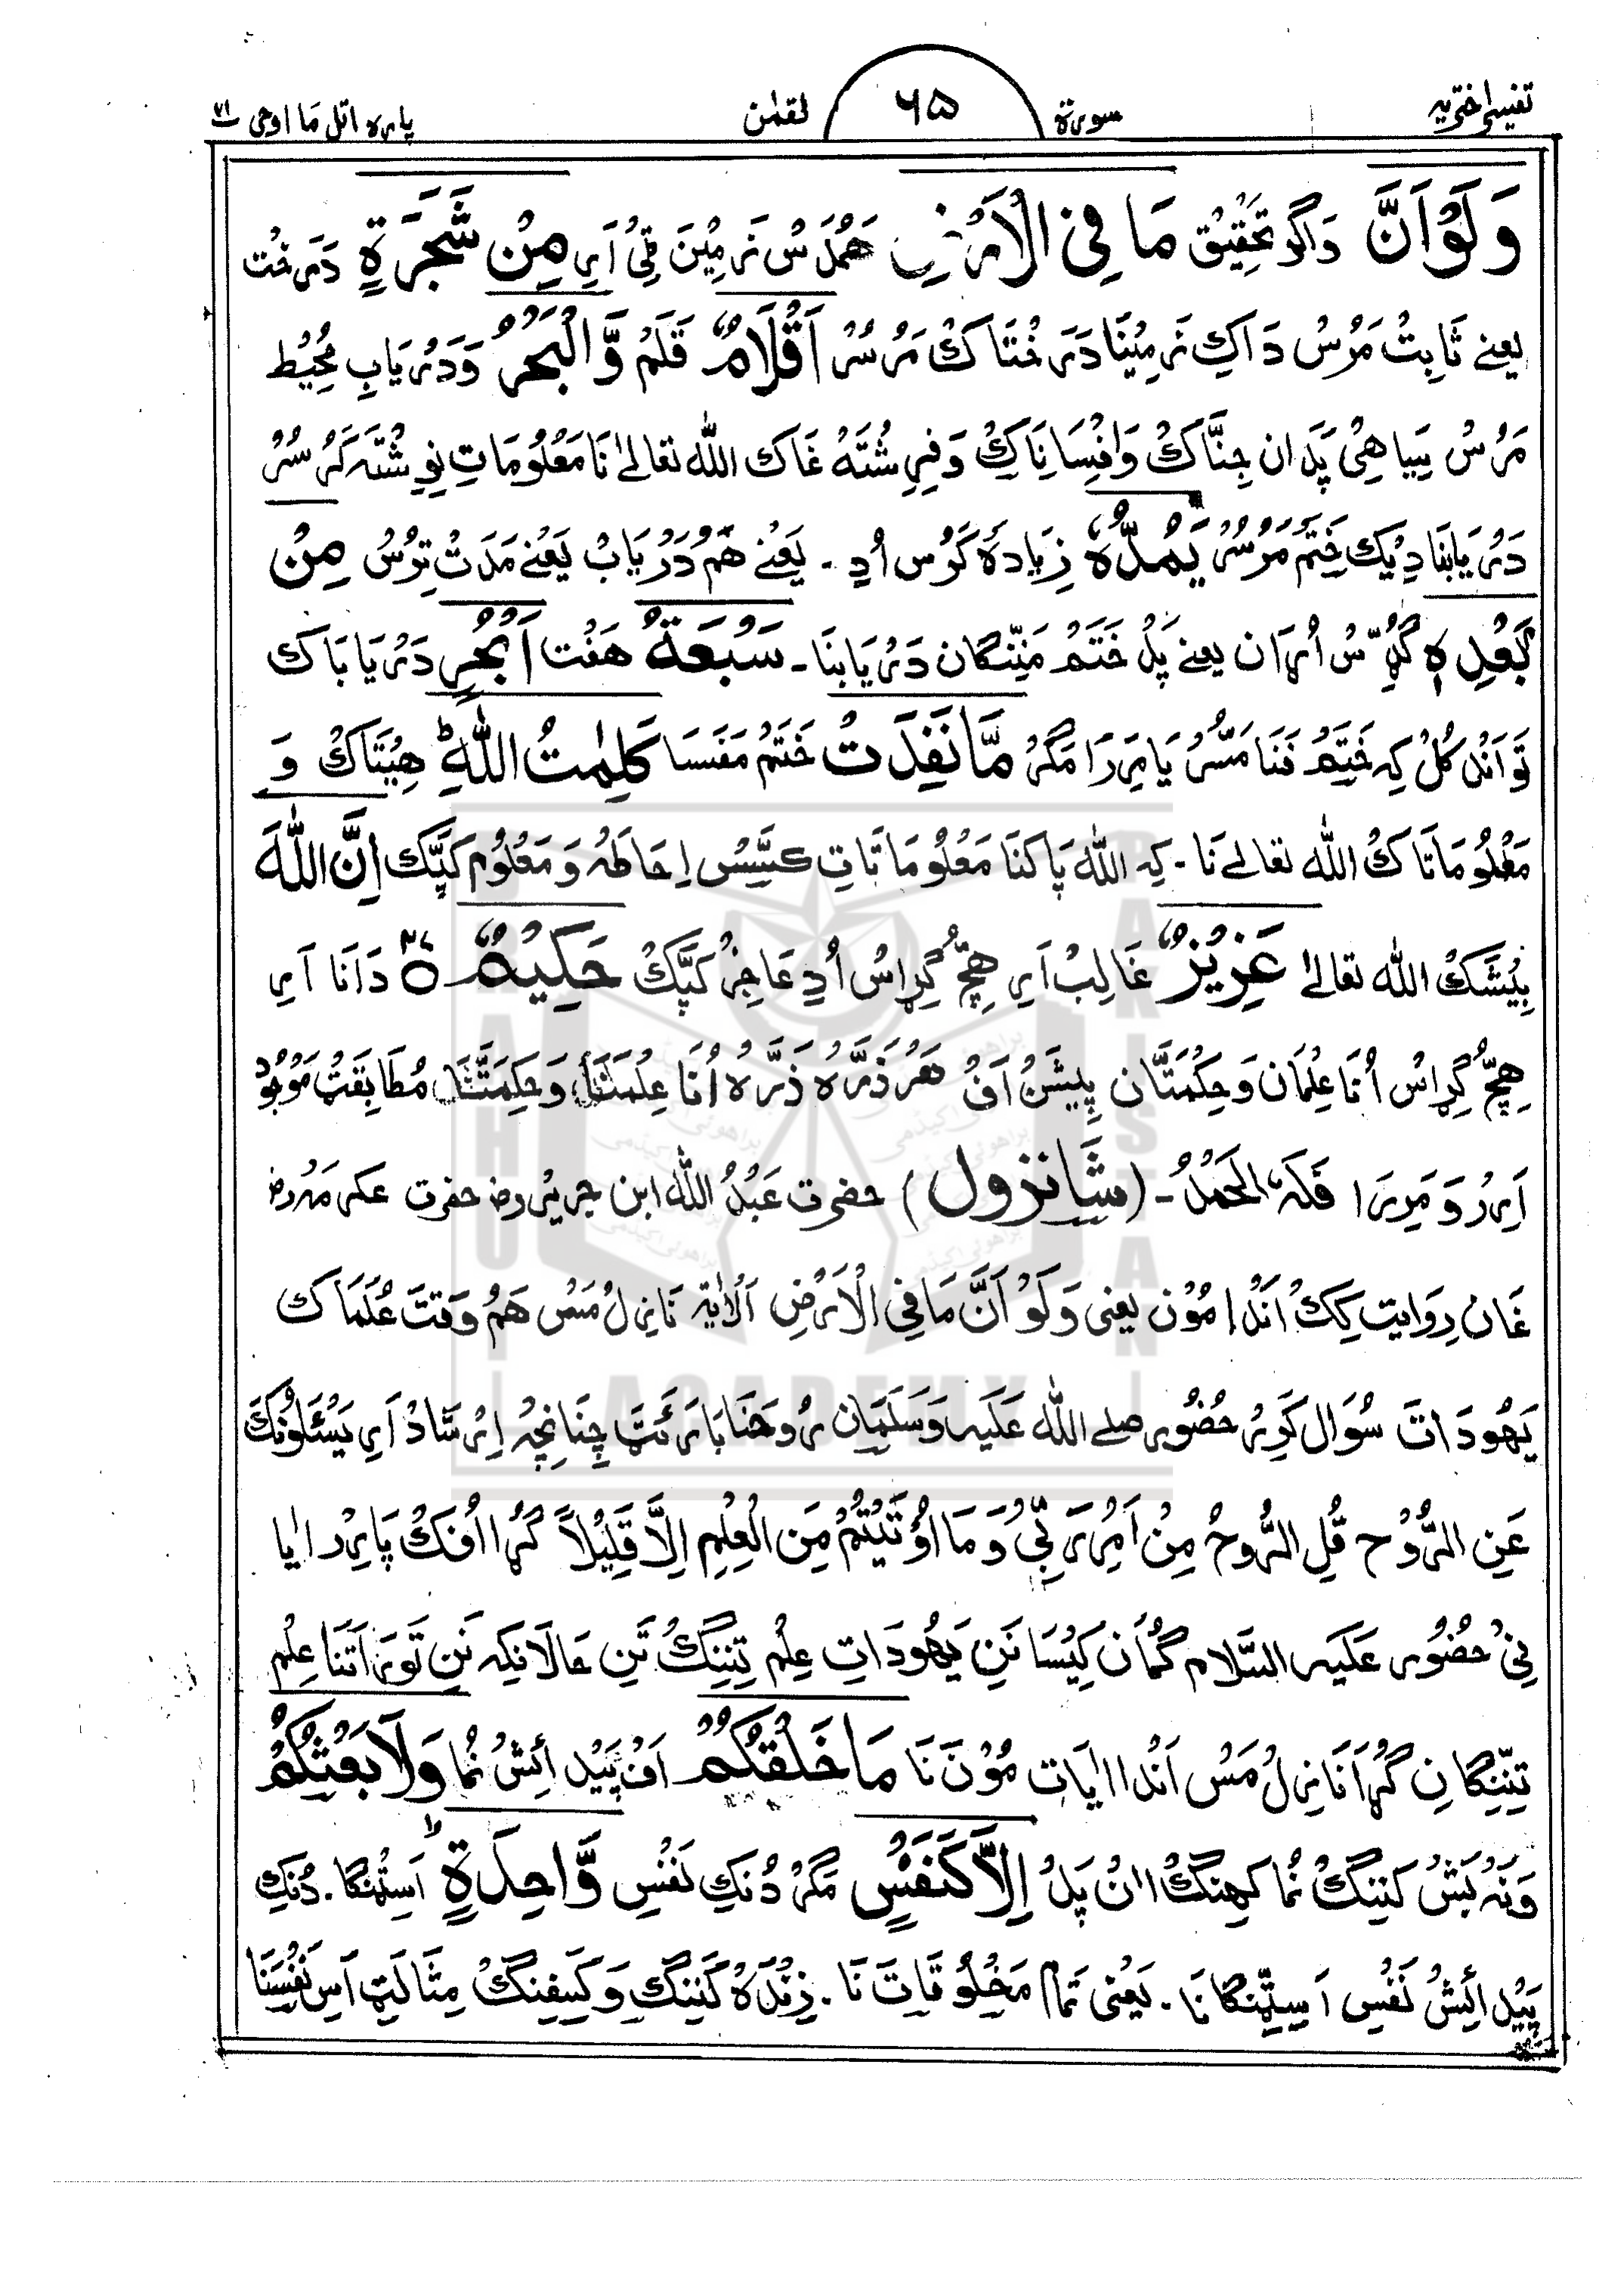 تفسیر اختریہ سورة ۶۵ لقمٰن پارہ اتل مَا اوحی ۲۱
وَلَوْ اَنَّ دَاگو تحقِیْق مَا فِی الْاَرْضِ هَمُدَ سْ زَمِیْنَ ٹِیْ اَرِ مِنْ شَجَرَةٍ دَرَخْت
یعنے ثَابِتْ مَرُسْ دَاکِ زَمِیْنَا دَرَخْتَاکْ مَرُسُر اَقْلَامٌ قَلَمْ وَّالْبَحْرُ وَدَرْیَابِ مُحِیْط
مَرُسْ سِیاهِیْ پَدان جِنَّاکْ وَاِنْسَانَاکْ وَفِرِشْتَهْ غَاکْ اللّٰه تعالےٰ نَا مَعْلُوْمَاتِ نِوِشْتَہ کَرُسُر
دَرْیَابنَا دِیْک خَتَمْ مَرُسُر یَمُدُّهٗ زِیَادَہ کَرُس اُدِ ۔ یَعْنے هَمْ دَرْیَابْ یَعْنے مَدَتْ تِرُسْ مِنْ
بَعْدِهٖ گُڑسْ اُڑان یعنے پَدْ خَتَمْ مَنِّنگان دَرْیَابنَا۔ سَبْعَةُ هَفْت اَبْحُرٍ دَرْیَابَاک
تَوْ اَنْدُن کُلْ کہ خَتَمْ فَنَا مَسُّرْ یَا مَرِرَا مَگر مَّا نَفِدَتْ خَتَمْ مَفَسَا کَلِمٰتُ اللّٰهِ هِیْتَاکْ وَ
مَعْلُوْمَاتَاکْ اللّٰه تعالےٰ نَا ۔ کِہ اللّٰه پَاکنَا مَعْلُوْمَاتَاتِ کَسَّسْ اِحَاطَہ وَمَعْلُوْم کَپَّک اِنَّ اللّٰهَ
بِیْشَکْ اللّٰه تعالےٰ عَزِیْزٌ غَالِبْ اَرِ هِچّ گِڑاسْ اُدِ عَاجِزْ کَپَّکْ حَکِیْمٌ دَانَا اَرِ
هِچّ گِڑاسْ اُنَا عِلْمَان وَحِکْمَتَان پیشَنْ اَفْ هَرْ ذَرَّہ ذَرَّہ اُنَا عِلْمَتَا وَحِکْمَتَّنَا مُطَابِقَتْ مَوْجُوْ
اَرِرْ وَ مَرِرَا فَلَہُ الْحَمْدُ ۔ (شَانزول) حضرت عَبْدُ اللّٰه ابن جریر رض حضرت عکرمہ رض
غَان رِوَایت کِکْ اَنْدا مُوْن یعنی وَلَوْ اَنَّ مَا فِی الْاَرْضِ اَلْاٰیَة نَازِلْ مَسْ هَمْ وَقتَ عُلَمَاک
یَهُودَاتَ سُوَال کَرِرْ حُضُور صلے اللّٰه عَلَیہ وَسَلَمَان رُوحنَا بَارَئَتْ چِنَانچِہ اِرْشَادْ اَرِ یَسْئَلُوْنَکَ
عَنِ الرُّوْحِ قُلِ الرُّوْحُ مِنْ اَمْرِ رَبِّیْ وَمَا اُوْتِیْتُمْ مِنَ الْعِلْمِ اِلَّا قَلِیْلًا گُڑا اُفکْ پَارِیْر اٰیا
نِیْ حُضُور عَلَیہ السَّلَام گُمَان کِیْسَا نَنِ یَهُودَاتِ عِلْم تِنِنگْ تَن حَالَانکِہ نَنِ تَوَراتَنَا عِلْم
تِنِنگان گُڑا نَازِلْ مَسْ اَنْدا اٰیَات مُوْن نَا مَا خَلْقُکُمْ اَفْ پَیْد ائِشْ نُما وَلَا بَعْثُکُمْ
وَنَہ بَشْ کَنِنگْ نُما کَهِنگا ان پَدْ اِلَّا کَنَفْسٍ مَگرْ دُنکِ نَفْسِ وَّاحِدَةٍ اَسِٹنگا ۔ دُنکِ
پَیْد ائِشْ نَفْس اَسِٹنگا نَا ۔ یَعْنی تَمَام مَخْلُوْقَاتَ نَا ۔ زِنْدَہ کَنِنگ وَکَسِفِنگْ مِثَالَتِ اَسِ نَفْسِنَا